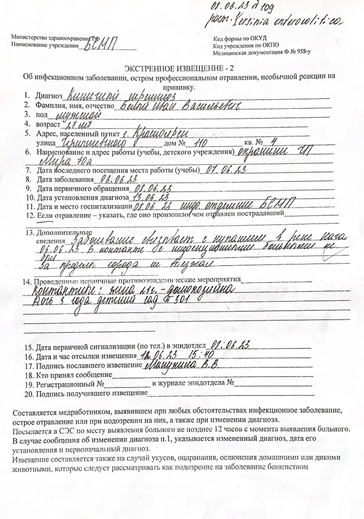 08.06.23 
Yersinia enterocolitica
Министерство здравоохранения
Код формы по ОКУД
Наименование учреждения БСМП
Код учреждения по ОКПО
Медицинская документация Ф № 058-у
ЭКСТРЕННОЕ ИЗВЕЩЕНИЕ - 2
Об инфекционном заболевании, остром профессиональном отравлении, необычной реакции на
прививку.
1. Диагноз Кишечный иерсиниоз
2. Фамилия, имя, отчество Иван Васильевич
3. пол мужской
4. возраст 27 лет
5. Адрес, населенный пункт г. Красноярск
улица дом № 110 кв. № 4
6. Наименование и адрес работы (учебы, детского учреждения) охранник ЧП
Мира 10а
7. Дата последнего посещения места работы (учебы) 07.06.23
8. Дата заболевания 08.06.23
9. Дата первичного обращения 08.06.23
10. Дата установления диагноза 13.06.23
11. Дата и место госпитализации 08.06.23 инфо отделение БСМП
12. Если отравление – указать, где оно произошло, чем отравлен пострадавший
13. Дополнительные
сведения Заболевание связывает с купанием в реке
06.06.23. В контакте с инфекционными больными не
За пределы города не выезжал
14. Проведенные первичные противоэпидемические мероприятия
Контактные: жена - домохозяйка
Дочь 3 года детский сад № 301
15. Дата первичной сигнализации (по тел.) в эпидотдел 08.06.23
16. Дата и час отсылки извещения 06.23 15:40
17. Подпись пославшего извещение В.В.
18. Кто принял сообщение
19. Регистрационный № в журнале эпидотдела №
20. Подпись получившего извещение
Составляется медработником, выявившем при любых обстоятельствах инфекционное заболевание,
острое отравление или при подозрении на них, а также при изменении диагноза.
Посылается в СЭС по месту выявления больного не позднее 12 часов с момента выявления больного.
В случае сообщения об изменении диагноза п.1, указывается измененный диагноз, дата его
установления и первоначальный диагноз.
Извещение составляется также на случай укусов, оцарапания, ослюнения домашними или дикими
животными, которые следует рассматривать как подозрение на заболевание бешенством